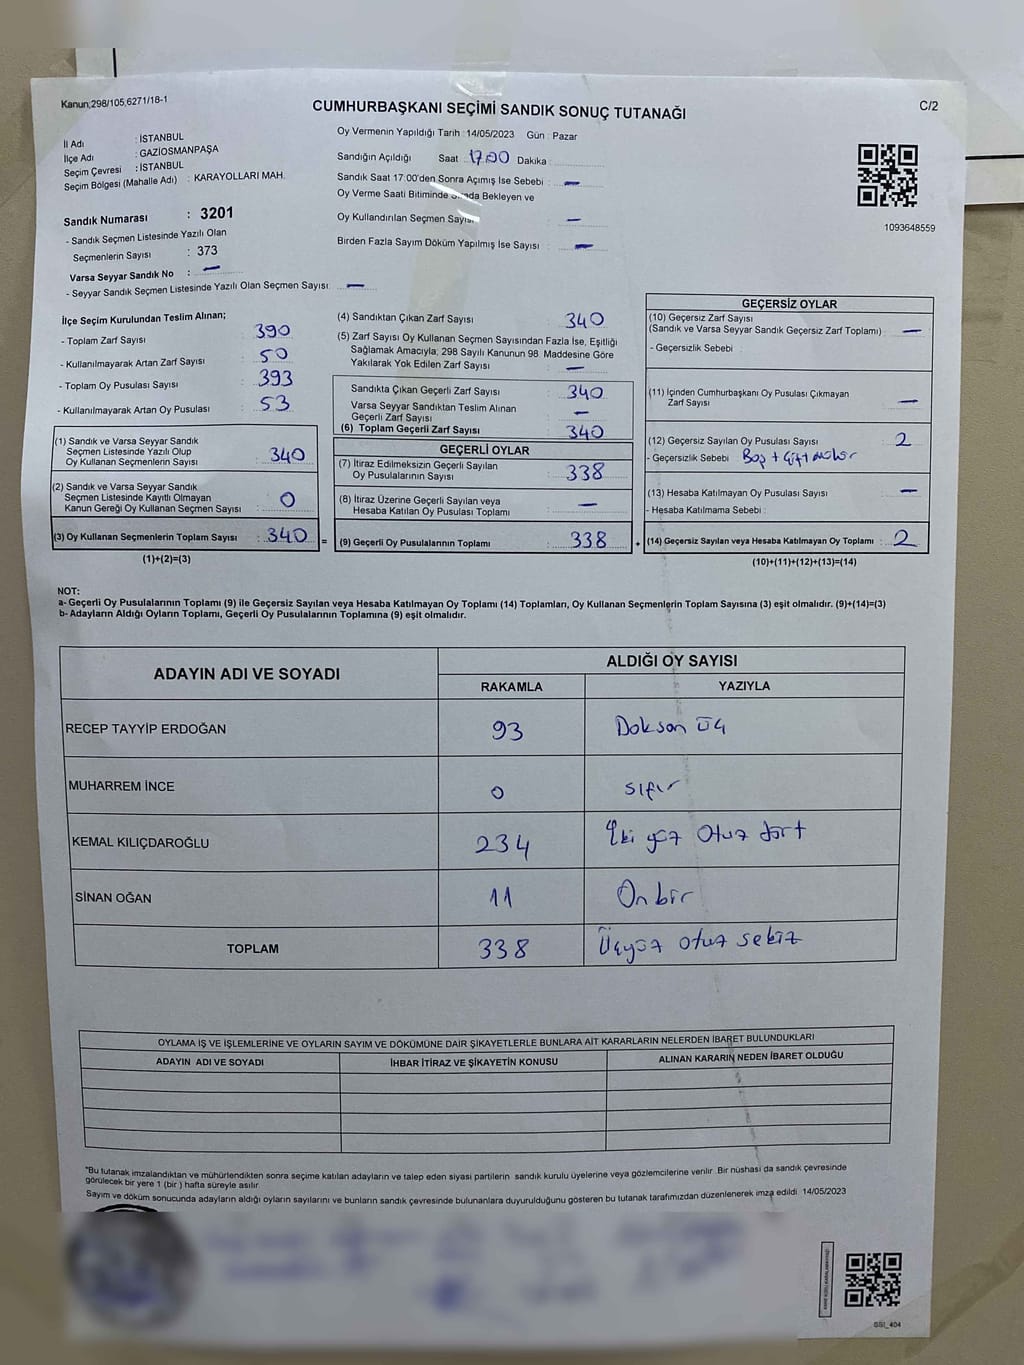 Kanun;298/105,6271/18-1
CUMHURBAŞKANI SEÇİMİ SANDIK SONUÇ TUTANAĞI
C/2
İl Adı : İSTANBUL
İlçe Adı : GAZİOSMANPAŞA
Seçim Çevresi : İSTANBUL
Seçim Bölgesi (Mahalle Adı) : KARAYOLLARI MAH.
Sandık Numarası : 3201
- Sandık Seçmen Listesinde Yazılı Olan
Seçmenlerin Sayısı : 373
Varsa Seyyar Sandık No : —
- Seyyar Sandık Seçmen Listesinde Yazılı Olan Seçmen Sayısı : —
Oy Vermenin Yapıldığı Tarih : 14/05/2023 Gün : Pazar
Sandığın Açıldığı Saat : 17.00 Dakika :
Sandık Saat 17:00'den Sonra Açımış İse Sebebi : —
Oy Verme Saati Bitiminde Bekleyen ve
Oy Kullandırılan Seçmen Sayısı —
Birden Fazla Sayım Döküm Yapılmış İse Sayısı : —
1093648559
İlçe Seçim Kurulundan Teslim Alınan;
- Toplam Zarf Sayısı : 390
- Kullanılmayarak Artan Zarf Sayısı : 50
- Toplam Oy Pusulası Sayısı : 393
- Kullanılmayarak Artan Oy Pusulası : 53
(1) Sandık ve Varsa Seyyar Sandık
Seçmen Listesinde Yazılı Olup
Oy Kullanan Seçmenlerin Sayısı : 340
(2) Sandık ve Varsa Seyyar Sandık
Seçmen Listesinde Kayıtlı Olmayan
Kanun Gereği Oy Kullanan Seçmen Sayısı : 0
(3) Oy Kullanan Seçmenlerin Toplam Sayısı : 340 =
(1)+(2)=(3)
(4) Sandıktan Çıkan Zarf Sayısı : 340
(5) Zarf Sayısı Oy Kullanan Seçmen Sayısından Fazla İse, Eşitliği
Sağlamak Amacıyla, 298 Sayılı Kanunun 98. Maddesine Göre
Yakılarak Yok Edilen Zarf Sayısı : —
Sandıkta Çıkan Geçerli Zarf Sayısı : 340
Varsa Seyyar Sandıktan Teslim Alınan
Geçerli Zarf Sayısı : —
(6) Toplam Geçerli Zarf Sayısı : 340
GEÇERLİ OYLAR
(7) İtiraz Edilmeksizin Geçerli Sayılan
Oy Pusulalarının Sayısı : 338
(8) İtiraz Üzerine Geçerli Sayılan veya
Hesaba Katılan Oy Pusulası Toplamı : —
(9) Geçerli Oy Pusulalarının Toplamı : 338 +
GEÇERSİZ OYLAR
(10) Geçersiz Zarf Sayısı
(Sandık ve Varsa Seyyar Sandık Geçersiz Zarf Toplamı) : —
- Geçersizlik Sebebi :
(11) İçinden Cumhurbaşkanı Oy Pusulası Çıkmayan
Zarf Sayısı : —
(12) Geçersiz Sayılan Oy Pusulası Sayısı : 2
- Geçersizlik Sebebi : Boş +
(13) Hesaba Katılmayan Oy Pusulası Sayısı : —
- Hesaba Katılmama Sebebi :
(14) Geçersiz Sayılan veya Hesaba Katılmayan Oy Toplamı : 2
(10)+(11)+(12)+(13)=(14)
NOT:
a- Geçerli Oy Pusulalarının Toplamı (9) ile Geçersiz Sayılan veya Hesaba Katılmayan Oy Toplamı (14) Toplamları, Oy Kullanan Seçmenlerin Toplam Sayısına (3) eşit olmalıdır. (9)+(14)=(3)
b- Adayların Aldığı Oyların Toplamı, Geçerli Oy Pusulalarının Toplamına (9) eşit olmalıdır.
ADAYIN ADI VE SOYADI
ALDIĞI OY SAYISI
RAKAMLA YAZIYLA
RECEP TAYYİP ERDOĞAN 93 Doksan Üç
MUHARREM İNCE 0 sıfır
KEMAL KILIÇDAROĞLU 234 İki yüz Otuz dört
SİNAN OĞAN 11 On bir
TOPLAM 338 Üçyüz otuz sekiz
OYLAMA İŞ VE İŞLEMLERİNE VE OYLARIN SAYIM VE DÖKÜMÜNE DAİR ŞİKAYETLERLE BUNLARA AİT KARARLARIN NELERDEN İBARET BULUNDUKLARI
ADAYIN ADI VE SOYADI İHBAR İTİRAZ VE ŞİKAYETİN KONUSU ALINAN KARARIN NEDEN İBARET OLDUĞU
*Bu tutanak imzalandıktan ve mühürlendikten sonra seçime katılan adayların ve talep eden siyasi partilerin sandık kurulu üyelerine veya gözlemcilerine verilir. Bir nüshası da sandık çevresinde
görülecek bir yere 1 (bir) hafta süreyle asılır.
Sayım ve döküm sonucunda adayların aldığı oyların sayılarını ve bunların sandık çevresinde bulunanlara duyurulduğunu gösteren bu tutanak tarafımızdan düzenlenerek imza edildi 14/05/2023
SSI_404